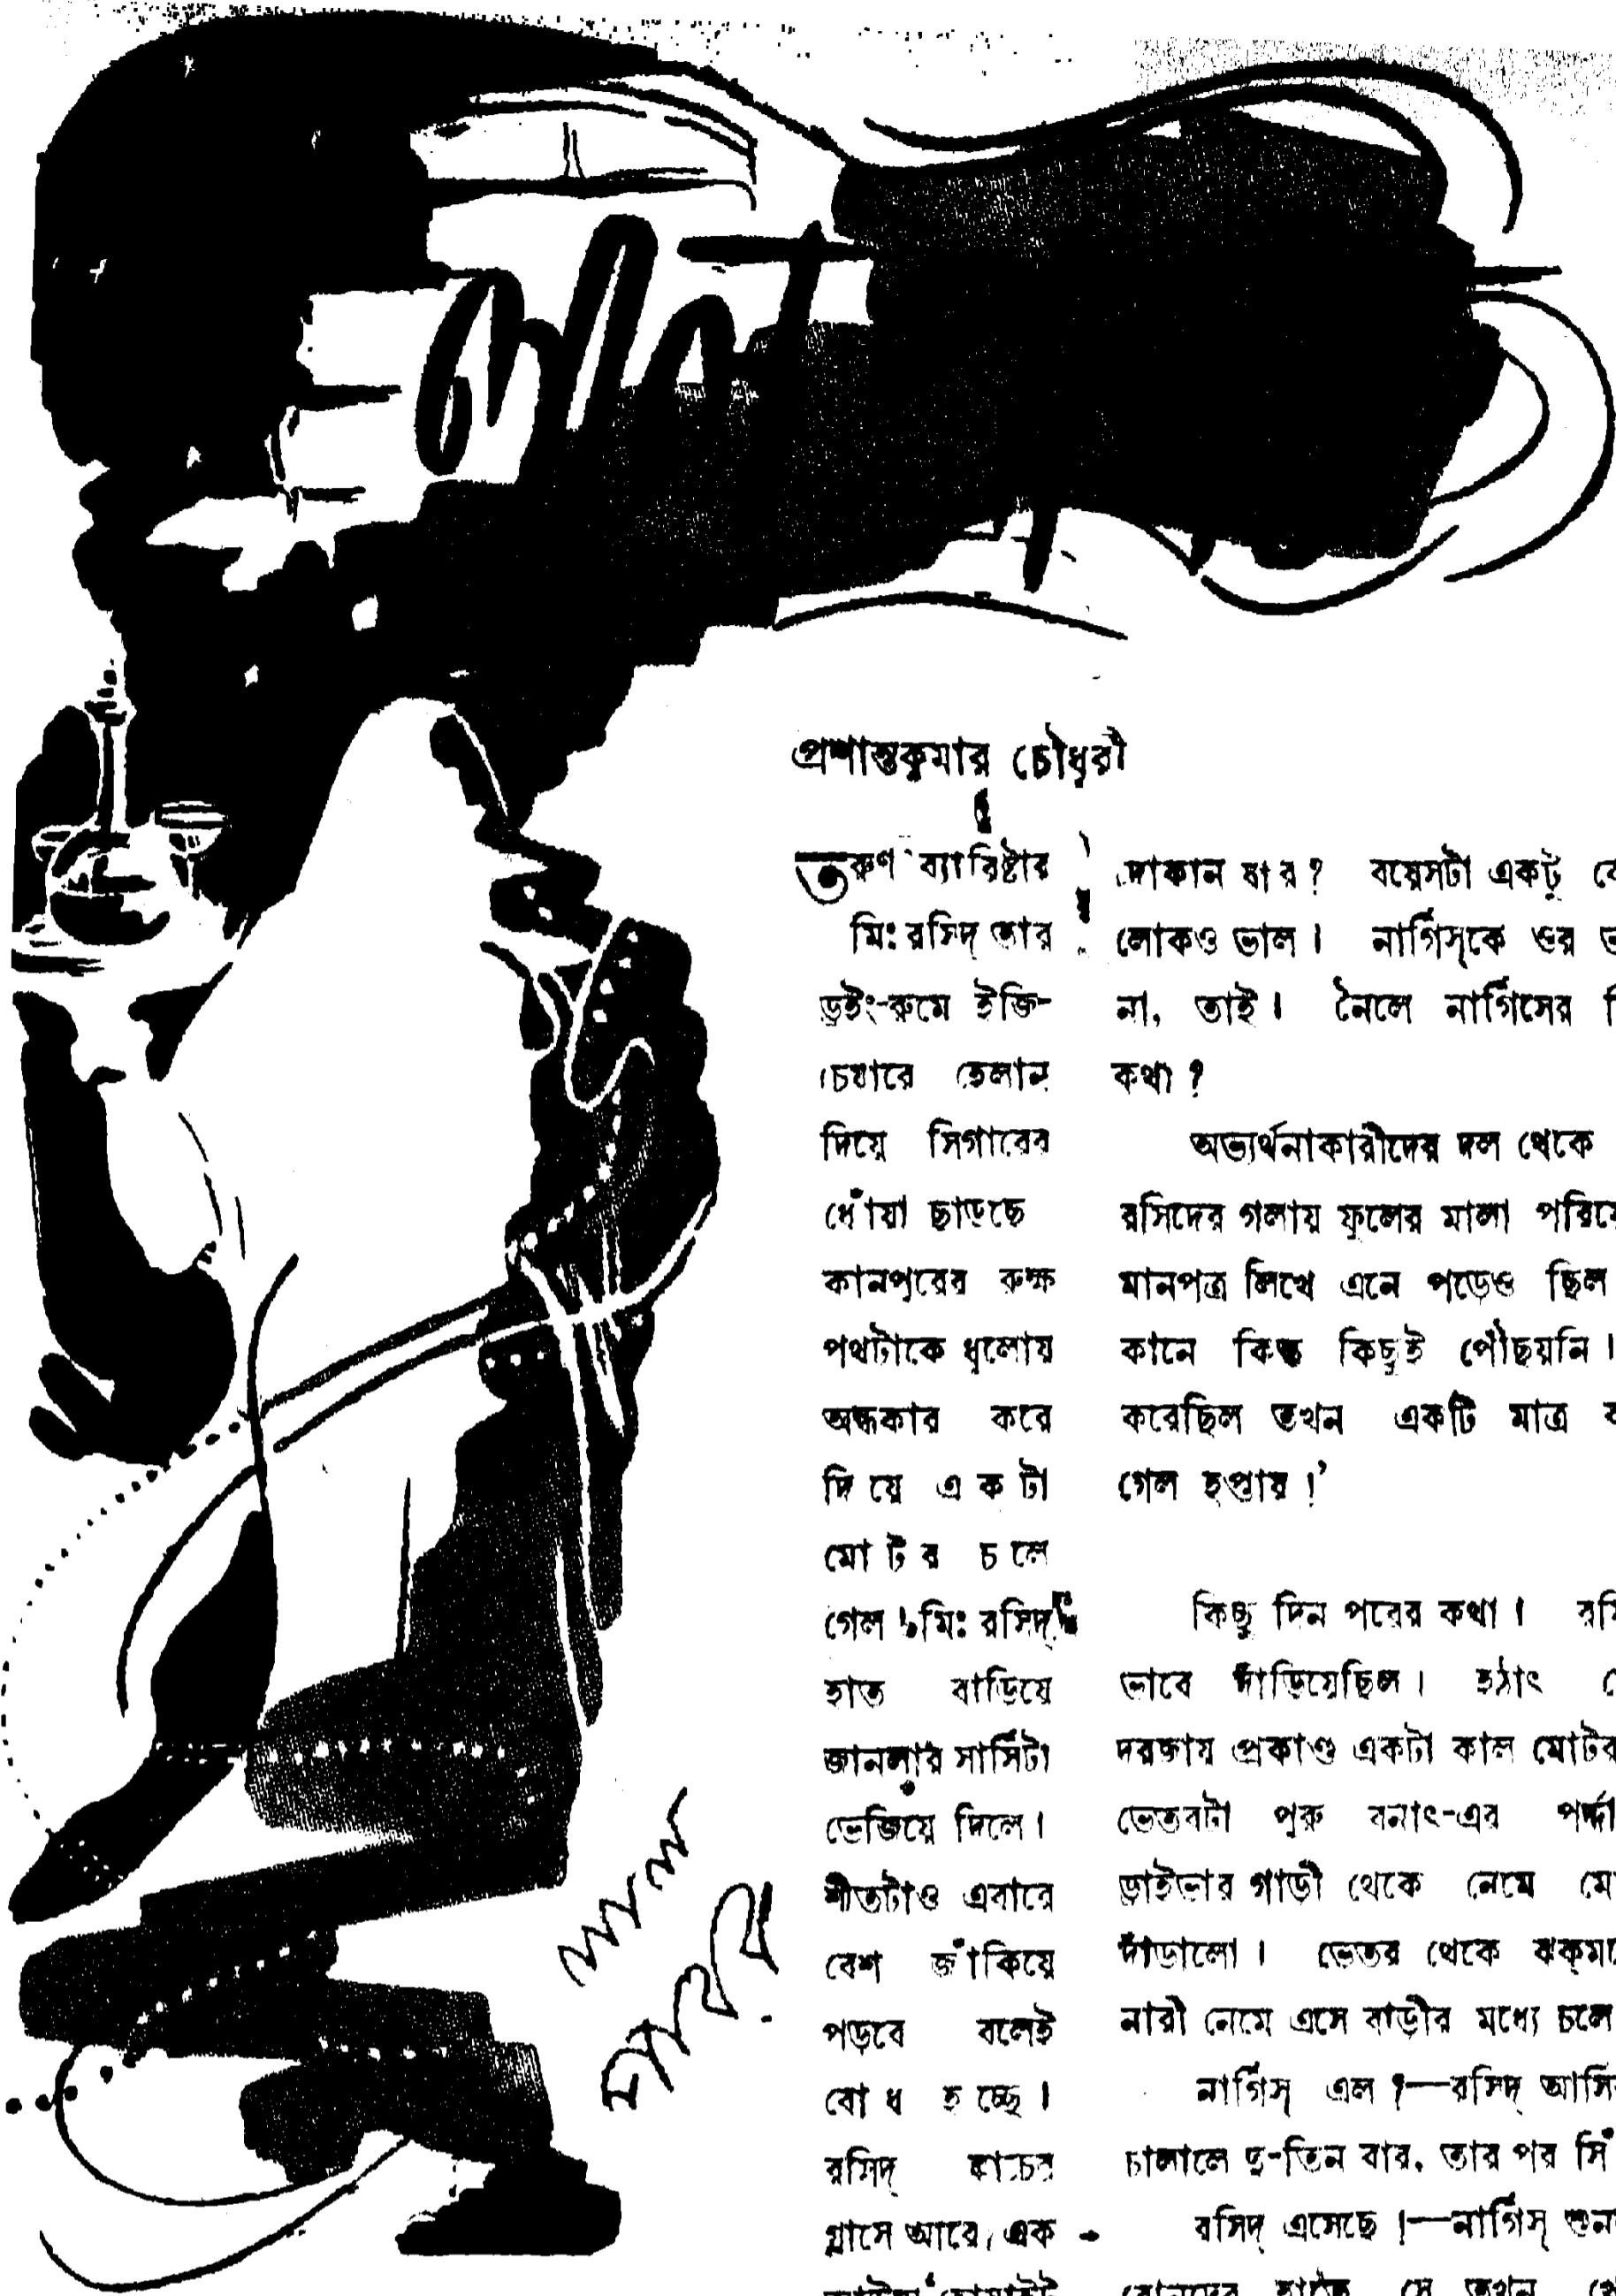 প্রশান্তকুমার চৌধুরী
তরুণ ব্যারিষ্টার
মিঃ রসিদ্ তার
ড্রইং-রুমে ইজি-
চেয়ারে হেলান
দিয়ে সিগারের
ধোঁয়া ছাড়ছে
কানপুরের রুক্ষ
পথটাকে ধূলোয়
অন্ধকার করে
দিয়ে একটা
মোটর চলে
গেল। মিঃ রসিদ্
হাত বাড়িয়ে
জানলার সার্সিটা
ভেজিয়ে দিলে।
শীতটাও এবারে
বেশ জাঁকিয়ে
পড়বে বলেই
বোধ হচ্ছে।
রসিদ্ কাচের
গ্লাসে আরো এক
দোকান যার? বয়েসটা একটু
লোকও ভাল। নার্গিস্‌কে ওর
না, তাই। নৈলে নার্গিসের
কথা?
অভ্যর্থনাকারীদের দল থেকে
রসিদের গলায় ফুলের মালা
মানপত্র লিখে এনে পড়েও ছিল
কানে কিন্তু কিছুই পৌঁছয়নি।
করেছিল তখন একটি মাত্র
গেল হপ্তায়!’
কিছু দিন পরের কথা।
ভাবে দাঁড়িয়েছিল। হঠাৎ
দরজায় প্রকাণ্ড একটা কাল মোটর
ভেতরটা পুরু বনাৎ-এর পর্দ্দা
ড্রাইভার গাড়ী থেকে নেমে
দাঁড়ালো। ভেতর থেকে
নারী নেমে এসে বাড়ীর মধ্যে চলে
নার্গিস্ এল?—রসিদ্
চালালে দু-তিন বার, তার পর
রসিদ্ এসেছে!—নার্গিস্